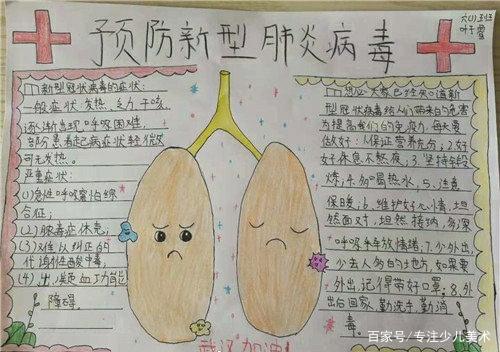 预防新型肺炎病毒
六(1)班
新型冠状病毒的症状:
一般症状:发热、乏力、干咳、
逐渐出现呼吸困难,
部防患者起病症状轻微,
可无发热。
严重症状:
(1)急性呼吸窘怕综
合征;
(2)脓毒症休克;
(3)难以纠正的
代谢性酸中毒,
(4)出、凝血功能
障碍
新型冠状病毒给人们带来的危害
为提高我们的免疫力,每天要
做好:1.保证营养充分;2.好
好休息不熬夜,3.坚持锻
炼,4.多喝热水,5、注意
保暖;6.维护好心情,坦
然面对,坦然接纳,多深
呼吸来释放情绪;7.少外出,
少去人多的土地方,如果要
外出,记得带好口罩,8.外
出后回家,勤洗手,勤消
毒。
武汉加油!
百家号/专注少儿美术